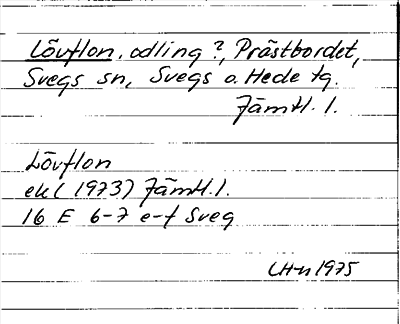 Lövflon, odling?, Prästbordet,
Svegs sn, Svegs o. Hede tg.
Jämtl. l.
Lövflon
ek (1973) Jämtl. l.
16 E 6-7 e-f Sveg
LH-n 1975